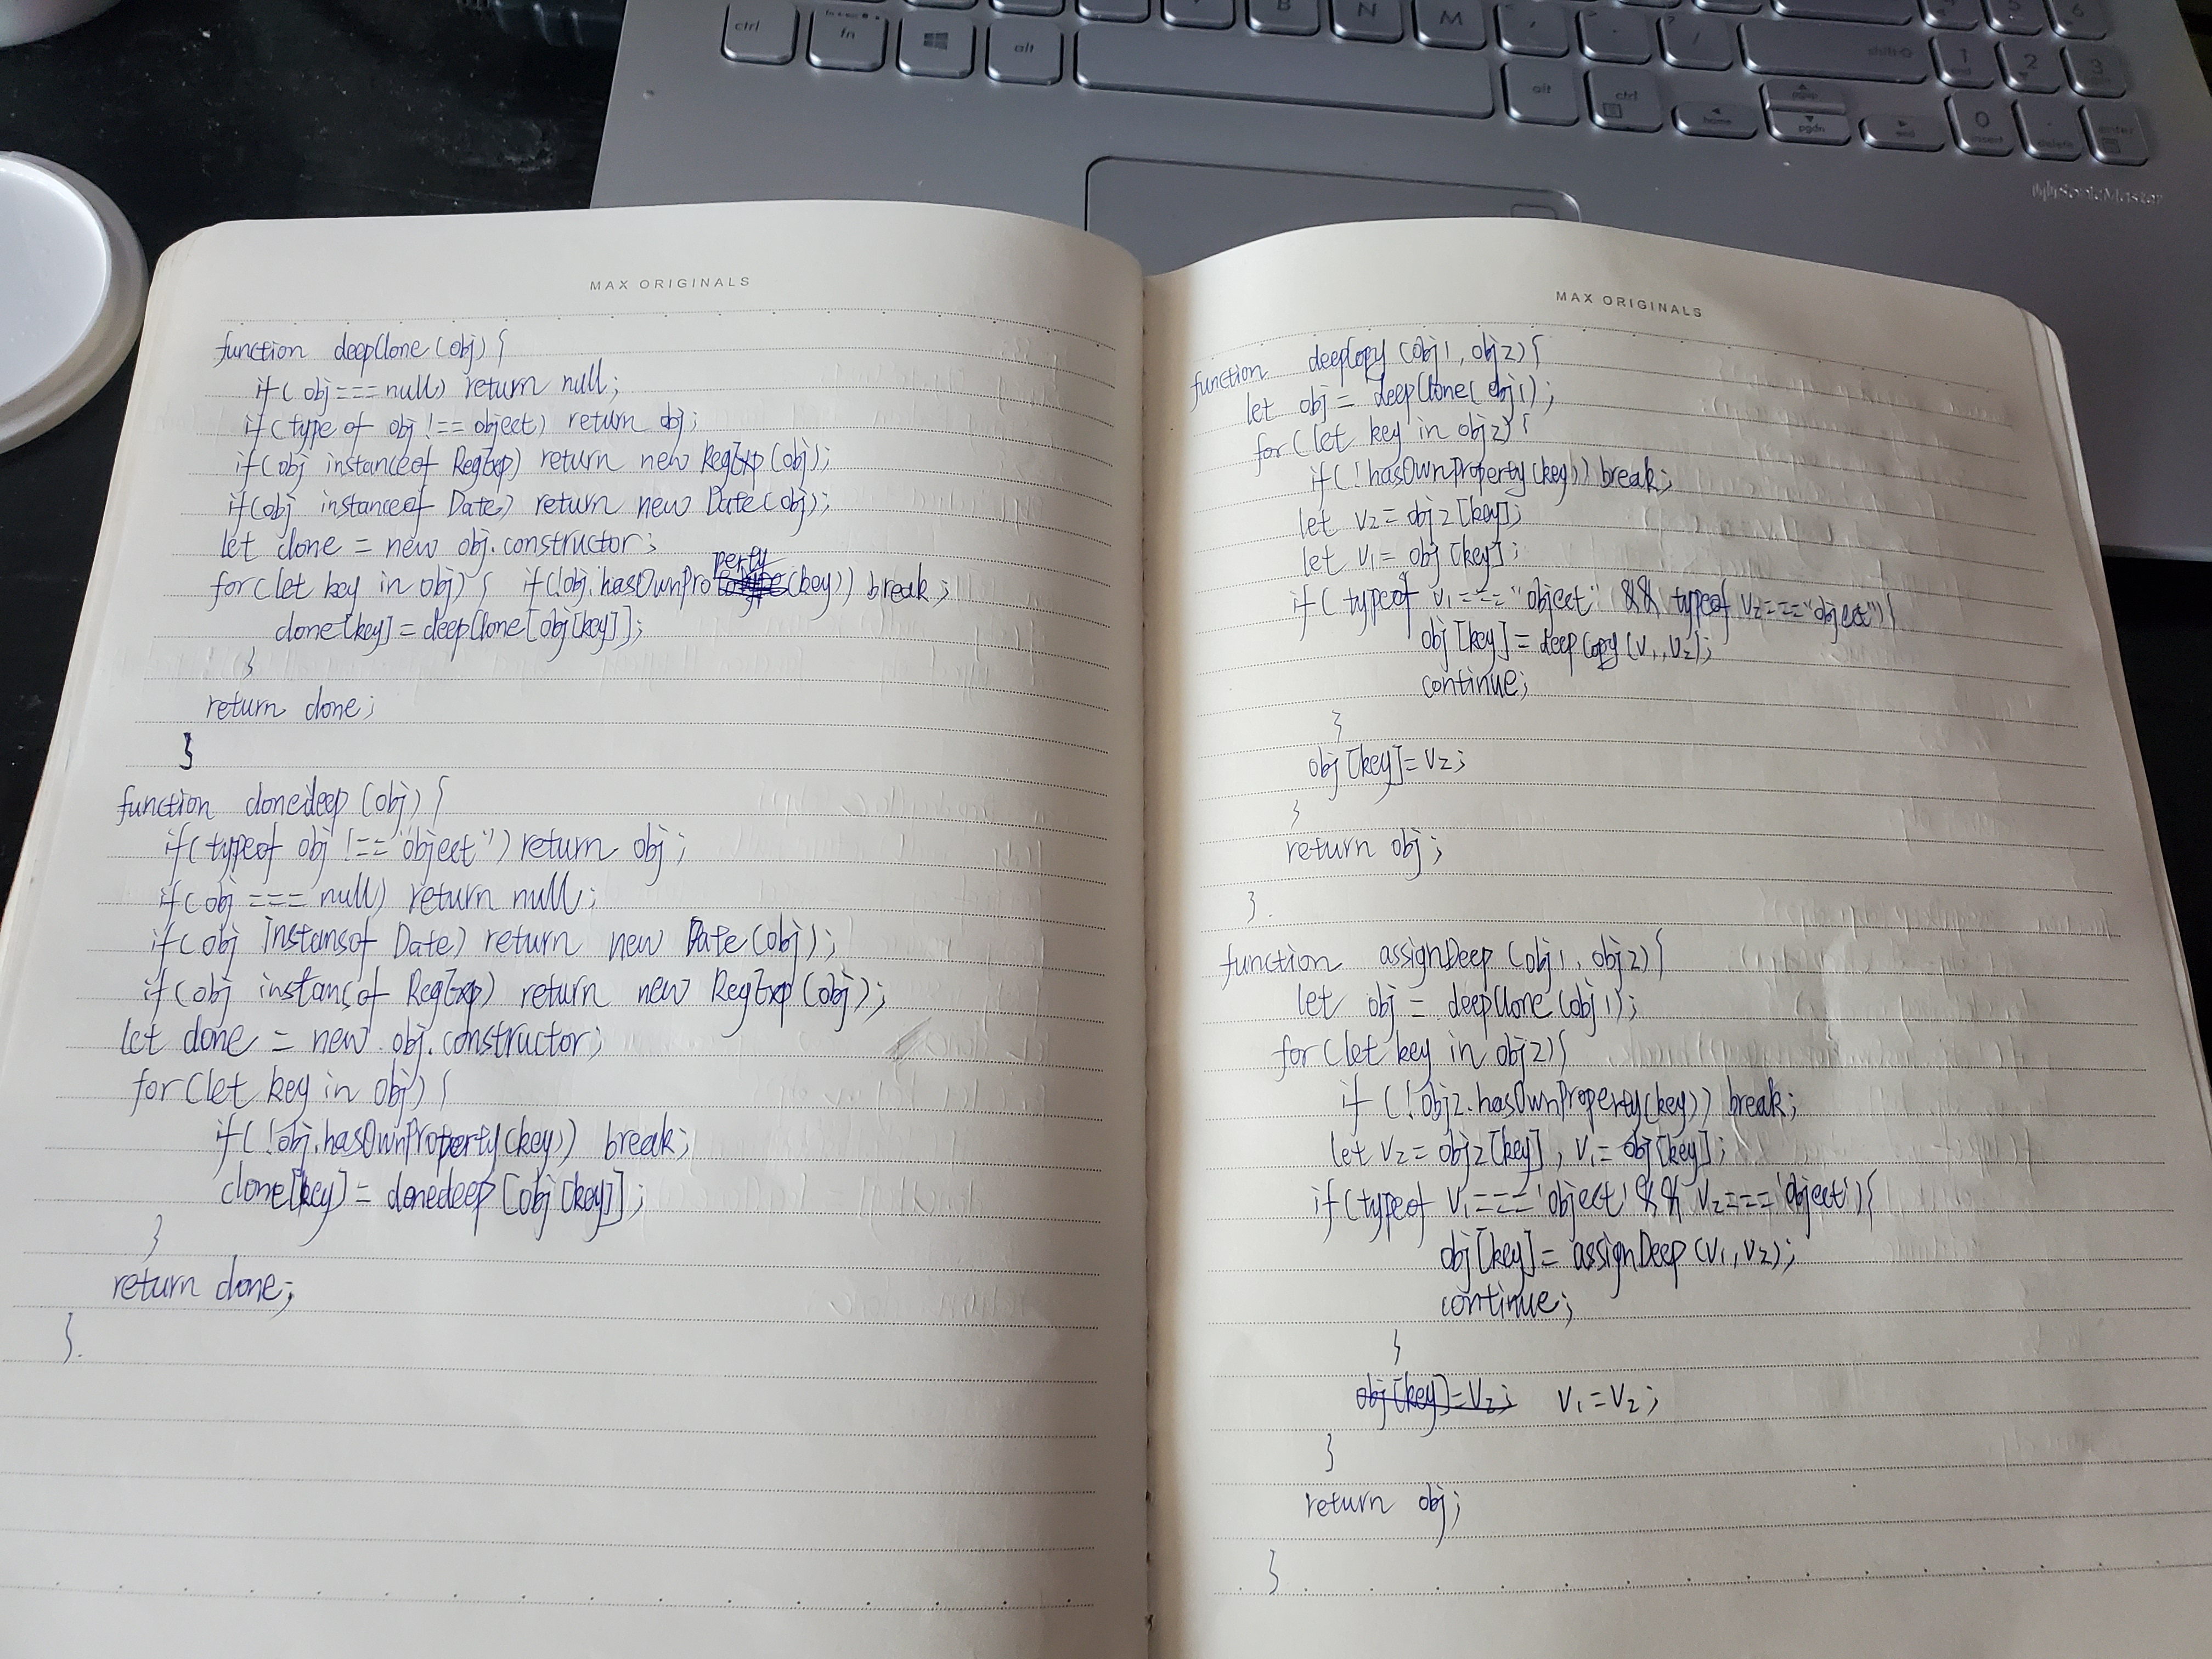 ctrl
fn
alt
B
N
M
alt
ctrl
home
pgup
pgdn
end
shift
1
end
2
3
0
insert
delete
enter
SonicMaster
MAX ORIGINALS
function deepClone (obj) {
if( obj === null) return null;
if( type of obj !== object) return obj;
if( obj instanceof RegExp) return new RegExp (obj);
if(obj instanceof Date) return new Date(obj);
let clone = new obj.constructor;
for(let key in obj) { if(!obj.hasOwnProperty(key)) break;
clone[key] = deepClone[obj[key]];
}
return clone;
}
function clonedeep (obj) {
if( typeof obj !== "object") return obj;
if( obj === null) return null;
if( obj instansof Date) return new Date(obj);
if( obj instansof RegExp) return new RegExp (obj);
let clone = new obj.constructor;
for(let key in obj) {
if( !obj.hasOwnProperty(key)) break;
clone[key] = clonedeep [obj[key]];
}
return clone;
}.
MAX ORIGINALS
function deepCopy (obj1, obj2) {
let obj = deepClone( obj1);
for(let key in obj2) {
if( !hasOwnProperty(key)) break;
let v2 = obj2[key];
let v1 = obj[key];
if( typeof v1 === "object" && typeof v2 === "object") {
obj[key] = deepCopy (v1, v2);
continue;
}
obj[key] = v2;
}
return obj;
}.
function assignDeep (obj1, obj2) {
let obj = deepClone (obj1);
for(let key in obj2) {
if (!obj2.hasOwnProperty(key)) break;
let v2 = obj2[key], v1 = obj[key];
if(typeof v1 === 'object' && v2 === 'object') {
obj[key] = assignDeep (v1, v2);
continue;
}
obj[key] = v2; v1 = v2;
}
return obj;
}